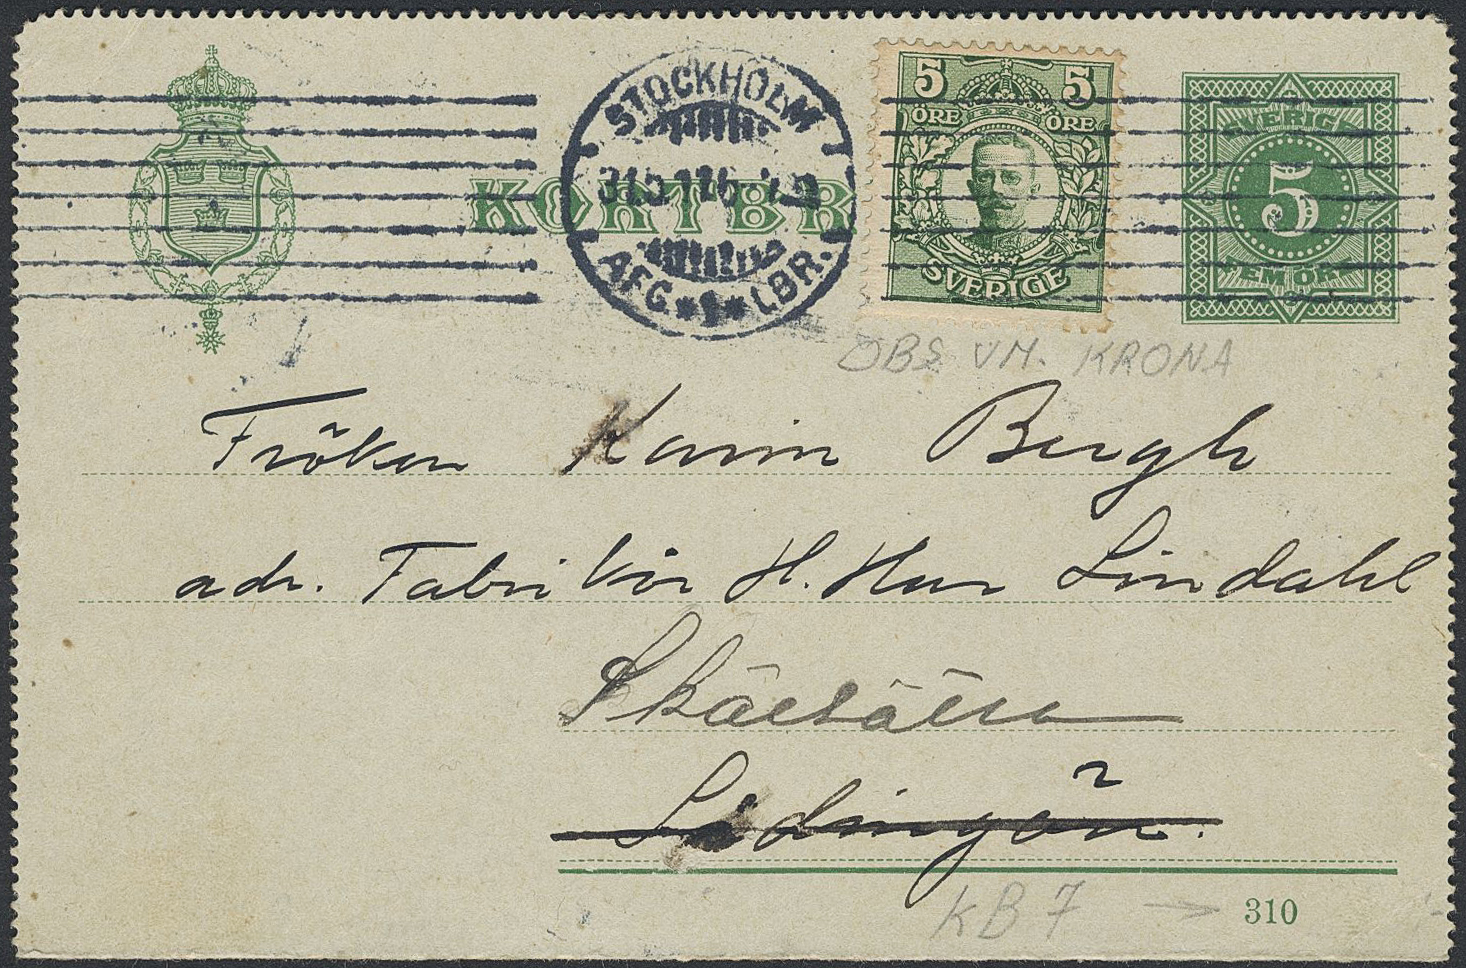 KORTBR
STOCKHOLM
31.5.1716
AFG. * 1 * LBR.
5 5
ÖRE ÖRE
SVERIGE
SVERIGE
5
FEM ÖRE
OBS VM. KRONA
Fröken Karin Bergh
adr. Fabrikör H. Lindahl
Lidingön.
KB 7 → 310